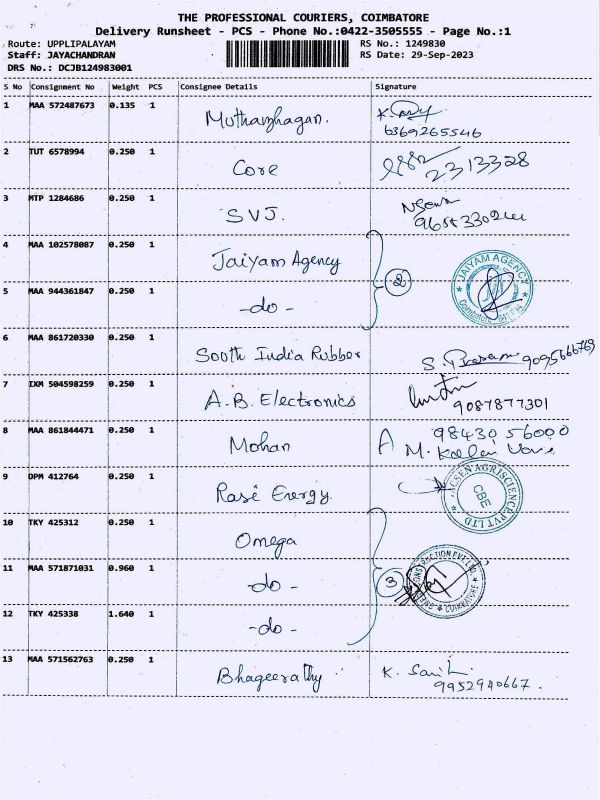 THE PROFESSIONAL COURIERS, COIMBATORE
Delivery Runsheet - PCS - Phone No.:0422-3505555 - Page No.:1
Route: UPPLIPALAYAM RS No.: 1249830
Staff: JAYACHANDRAN RS Date: 29-Sep-2023
DRS No.: DCJB124983001
S No Consignment No Weight PCS Consignee Details Signature
1 MAA 572487673 0.135 1 Muthazhagan.
6369265546
2 TUT 6578994 0.250 1 Core 2313328
3 MTP 1284686 0.250 1 SVJ.
4 MAA 102578087 0.250 1 Jaiyam Agency
5 MAA 944361847 0.250 1 -do- 2 JAIYAM AGENCY
6 MAA 861720330 0.250 1 South India Rubber S. 9095666769
7 IXM 504598259 0.250 1 A.B. Electronics
9087877301
8 MAA 861844471 0.250 1 Mohan 98430 56000
M.
9 OPM 412764 0.250 1 Rasi Energy ACSEN AGRISCIENCE PVT LTD CBE
10 TKY 425312 0.250 1 Omega
11 MAA 571871031 0.960 1 -do- 3 COIMBATORE
12 TKY 425338 1.640 1 -do-
13 MAA 571562763 0.250 1 Bhageerathy K.
9952940667.